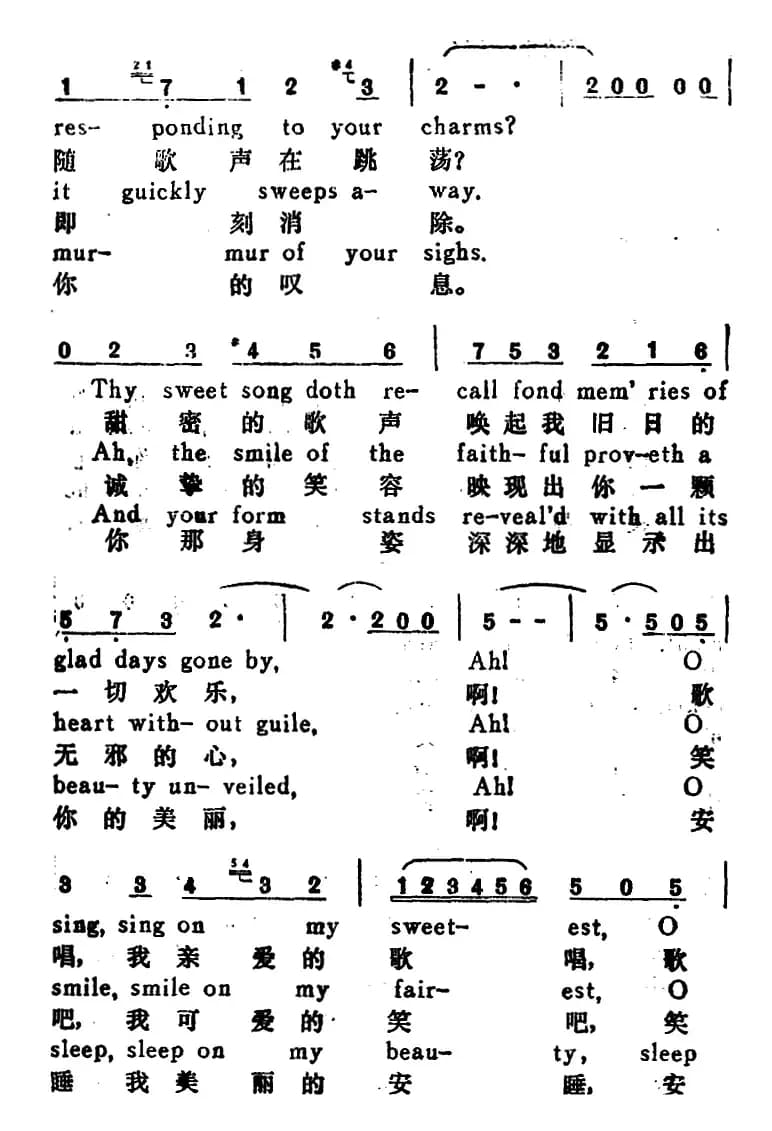 21 #4
1 7 1 2 3 | 2 - · | 200 00 |
res- ponding to your charms?
随 歌 声 在 跳 荡?
it guickly sweeps a- way.
即 刻 消 除。
mur- mur of your sighs.
你 的 叹 息。
0 2 3 #4 5 6 | 7 5 3 2 1 6 |
Thy sweet song doth re- call fond mem' ries of
甜 密 的 歌 声 唤 起 我 旧 日 的
Ah, the smile of the faith- ful prov-eth a
诚 挚 的 笑 容 映 现 出 你 一 颗
And your form stands re-veal'd with all its
你 那 身 姿 深 深 地 显 示 出
5 7 3 2 · | 2 · 200 | 5 - - | 5 · 505 |
glad days gone by, Ah! O
一 切 欢 乐, 啊! 歌
heart with- out guile, Ah! O
无 邪 的 心, 啊! 笑
beau- ty un- veiled, Ah! O
你 的 美 丽, 啊! 安
54
3 3 4 3 2 | 123456 5 0 5 |
sing, sing on my sweet- est, O
唱, 我 亲 爱 的 歌 唱, 歌
smile, smile on my fair- est, O
吧, 我 可 爱 的 笑 吧, 笑
sleep, sleep on my beau- ty, sleep
睡 我 美 丽 的 安 睡, 安